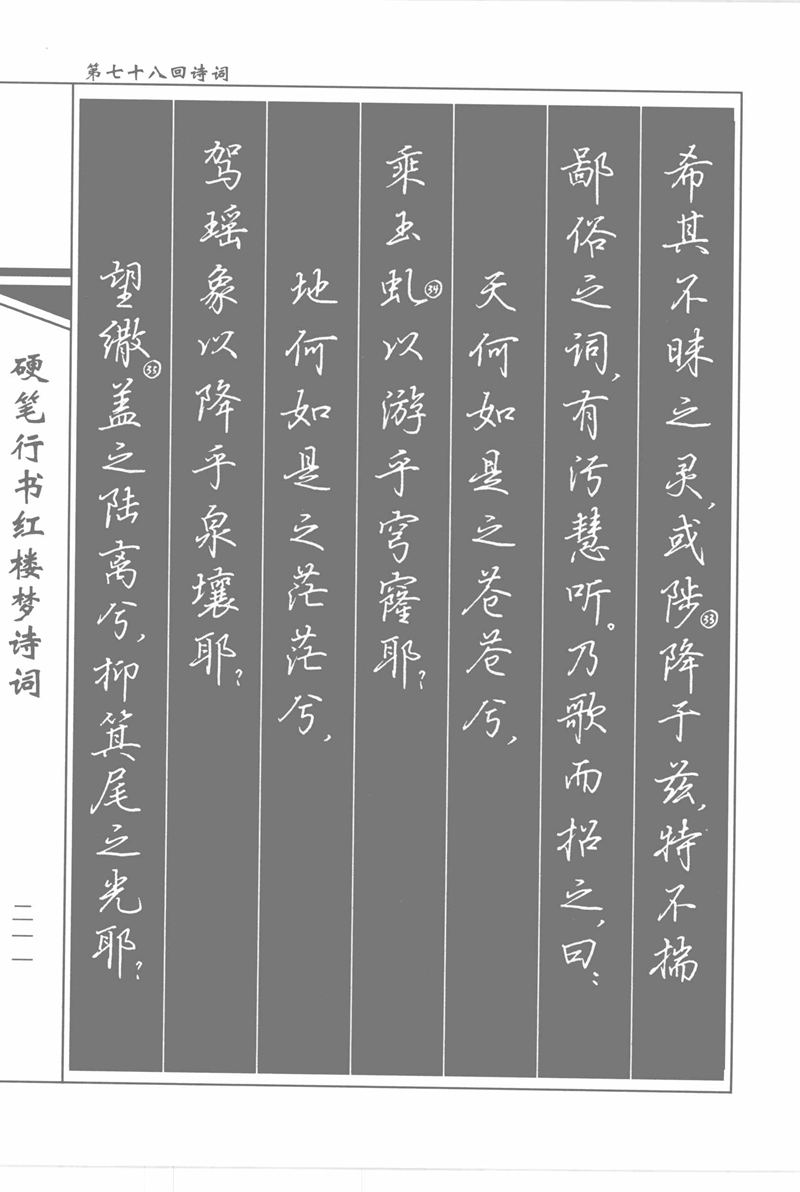 第七十八回诗词
希其不昧之灵,或陟㉝降于兹,特不揣
鄙俗之词,有污慧听。乃歌而招之,曰:
天何如是之苍苍兮,
乘玉虬㉞以游乎穹窿耶?
地何如是之茫茫兮,
驾瑶象以降乎泉壤耶?
望繖㉟盖之陆离兮,抑箕尾之光耶?
硬笔行书红楼梦诗词
二一一